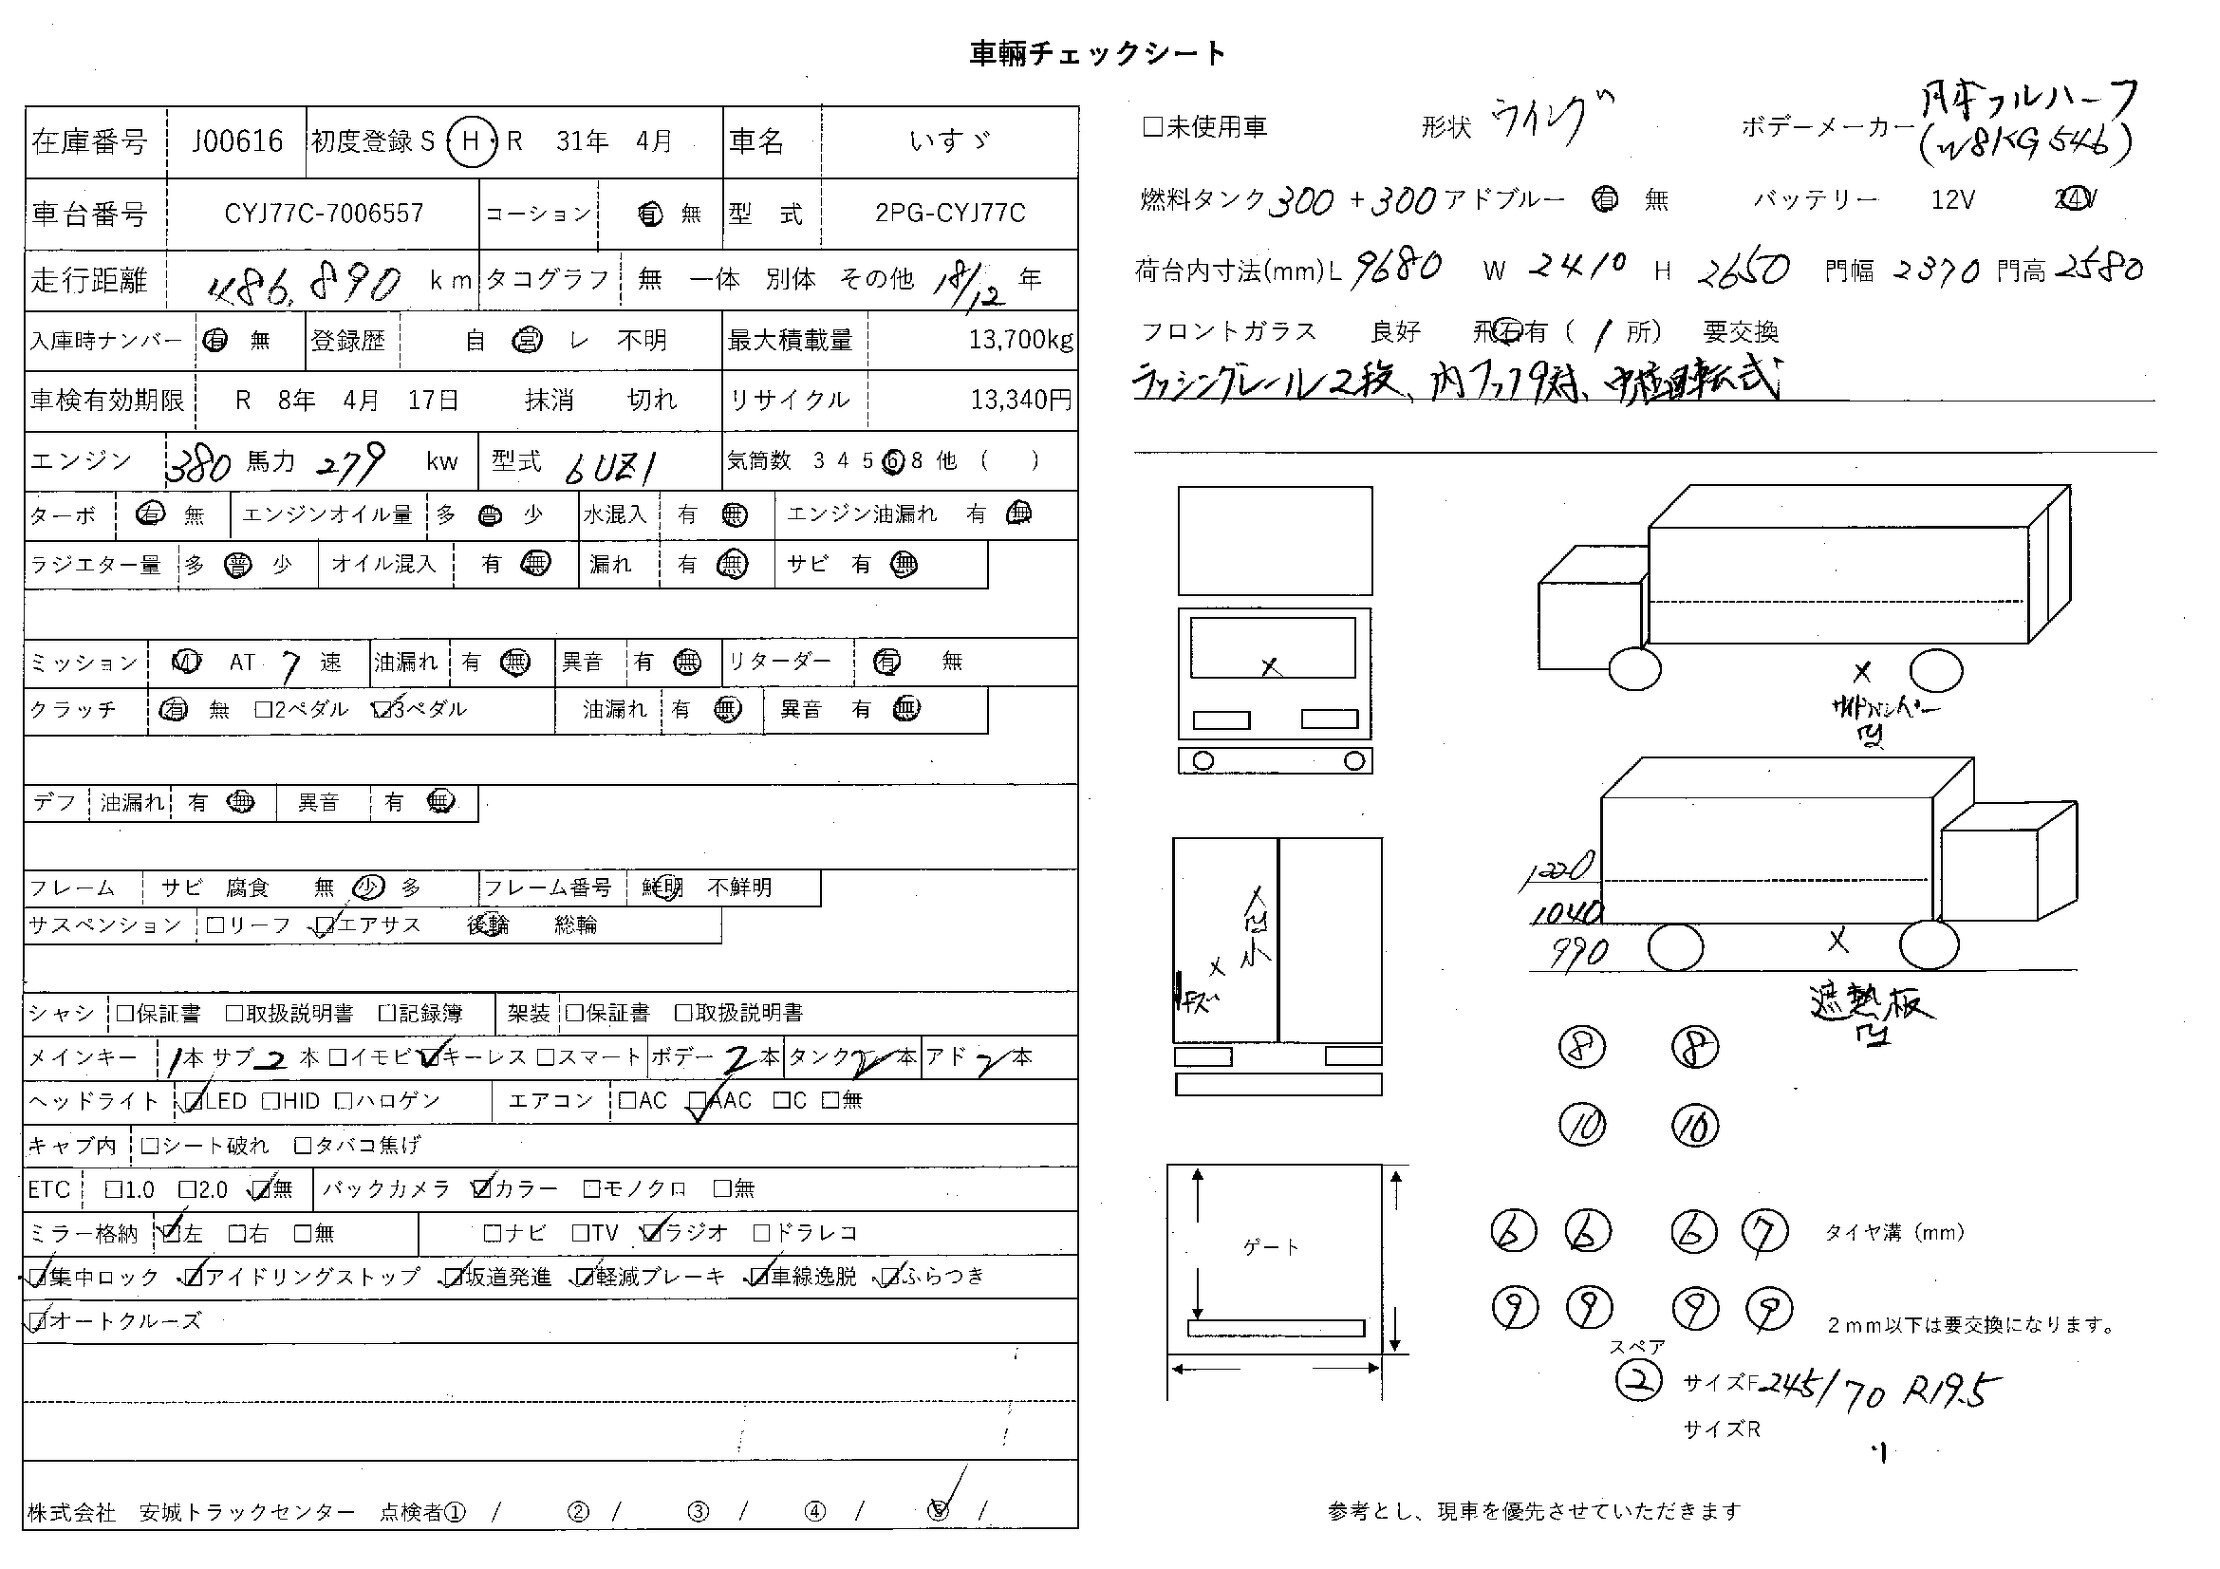 車輛チェックシート
在庫番号 J00616 初度登録 S・H・R 31年 4月 車名 いすゞ
車台番号 CYJ77C-7006557 コーション 有 無 型 式 2PG-CYJ77C
走行距離 486,890 km タコグラフ 無 一体 別体 その他 18/12 年
入庫時ナンバー 有 無 登録歴 自 営 レ 不明 最大積載量 13,700kg
車検有効期限 R 8年 4月 17日 抹消 切れ リサイクル 13,340円
エンジン 380 馬力 279 kw 型式 6UZ1 気筒数 3 4 5 6 8 他 ( )
ターボ 有 無 エンジンオイル量 多 普 少 水混入 有 無 エンジン油漏れ 有 無
ラジエター量 多 普 少 オイル混入 有 無 漏れ 有 無 サビ 有 無
ミッション MT AT 7 速 油漏れ 有 無 異音 有 無 リターダー 有 無
クラッチ 有 無 □2ペダル ☑3ペダル 油漏れ 有 無 異音 有 無
デフ 油漏れ 有 無 異音 有 無
フレーム サビ 腐食 無 少 多 フレーム番号 鮮明 不鮮明
サスペンション □リーフ ☑エアサス 後輪 総輪
シャシ □保証書 □取扱説明書 □記録簿 架装 □保証書 □取扱説明書
メインキー 1本 サブ 2 本 □イモビ ☑キーレス □スマート ボデー 2 本 タンク 2 本 アド 2 本
ヘッドライト ☑LED □HID □ハロゲン エアコン □AC ☑AAC □C □無
キャブ内 □シート破れ □タバコ焦げ
ETC □1.0 □2.0 ☑無 バックカメラ ☑カラー □モノクロ □無
ミラー格納 ☑左 □右 □無 □ナビ □TV ☑ラジオ □ドラレコ
☑集中ロック ☑アイドリングストップ ☑坂道発進 ☑軽減ブレーキ ☑車線逸脱 ☑ふらつき
☑オートクルーズ
株式会社 安城トラックセンター 点検者① / ② / ③ / ④ / ⑤ /
□未使用車 形状 ウイング ボデーメーカー 日本フルハーフ
(W8KG546)
燃料タンク 300 + 300 アドブルー 有 無 バッテリー 12V 24V
荷台内寸法(mm) L 9680 W 2410 H 2650 門幅 2370 門高 2580
フロントガラス 良好 飛石有 ( 1 所) 要交換
ラッシングレール2段、内フック9対、中柱回転式
×
×
サイドバンパー
凹
×
凹
小
×
キズ
1220
1040
990
×
遮熱板
凹
8 8
10 10
ゲート
6 6 6 7 タイヤ溝(mm)
9 9 9 9 2mm以下は要交換になります。
スペア
2 サイズF 245/70 R19.5
サイズR 〃
参考とし、現車を優先させていただきます